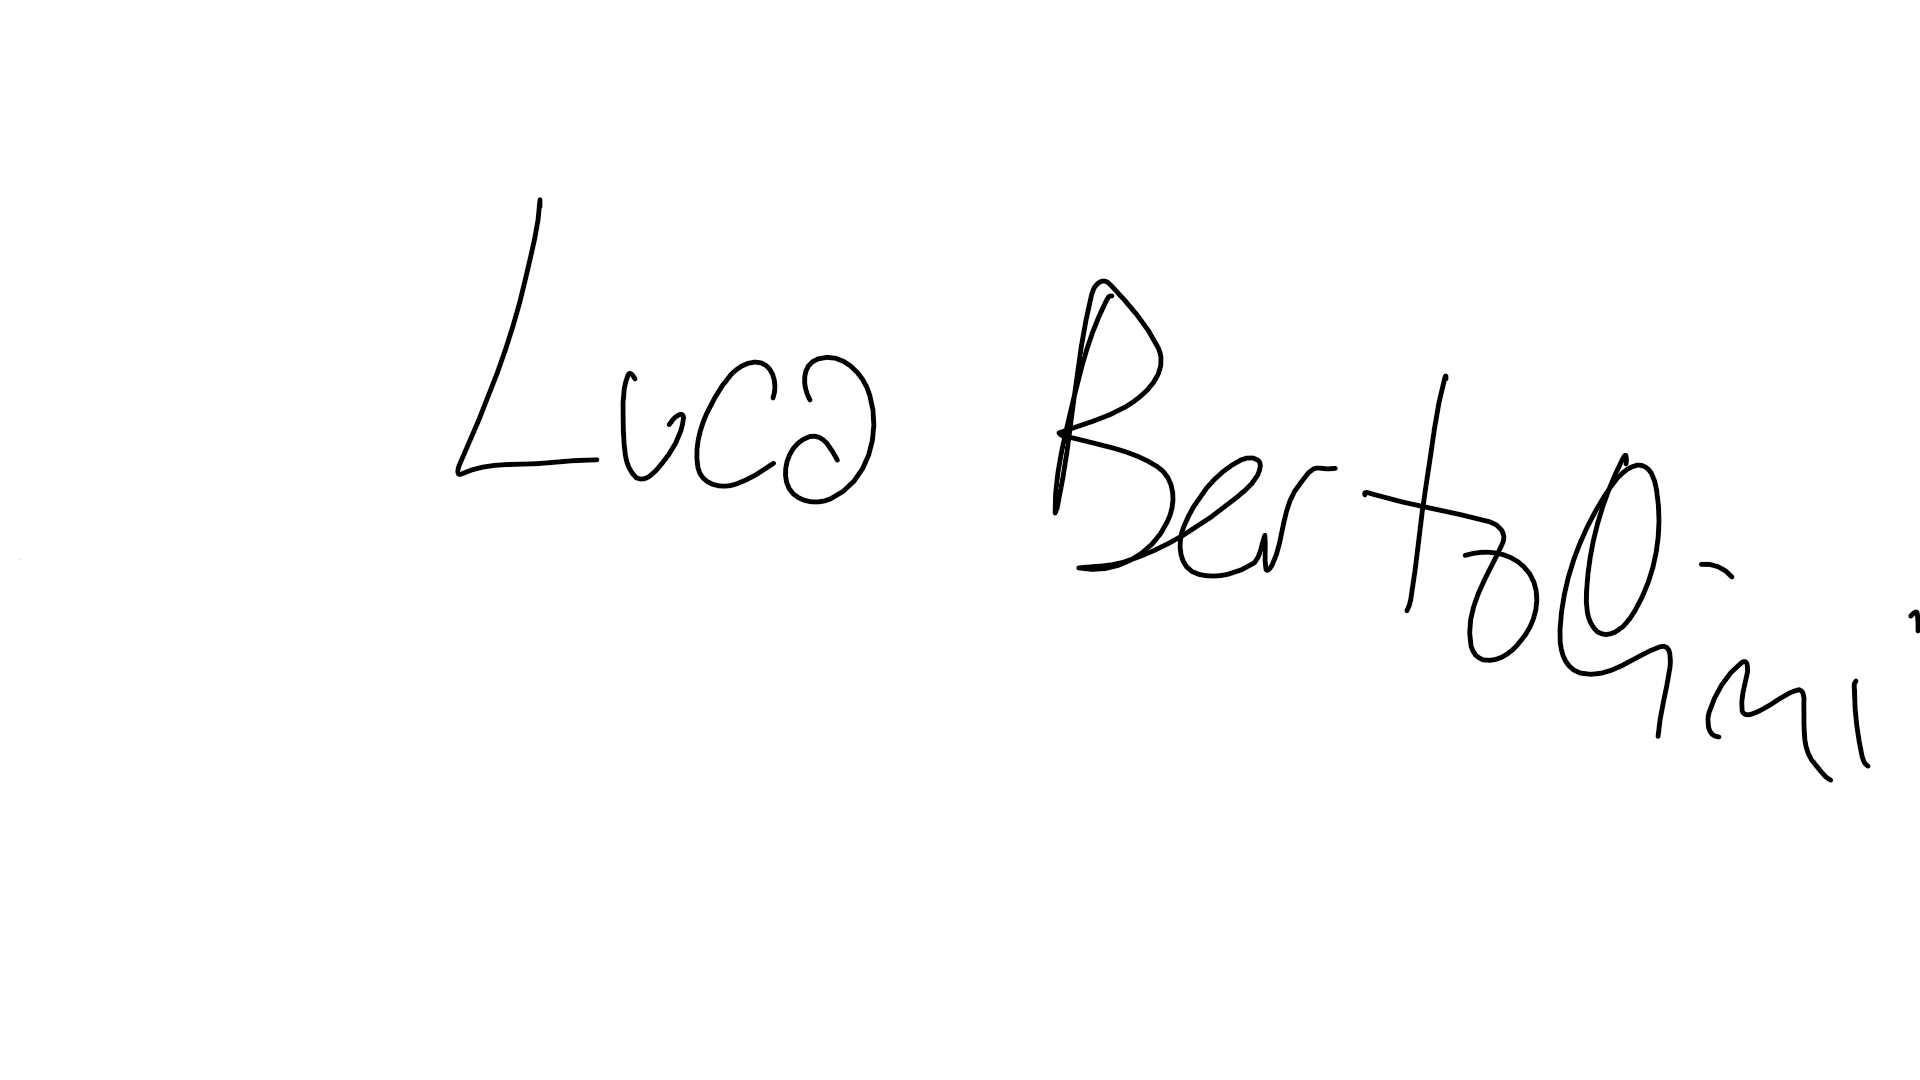 Luca Bertolini